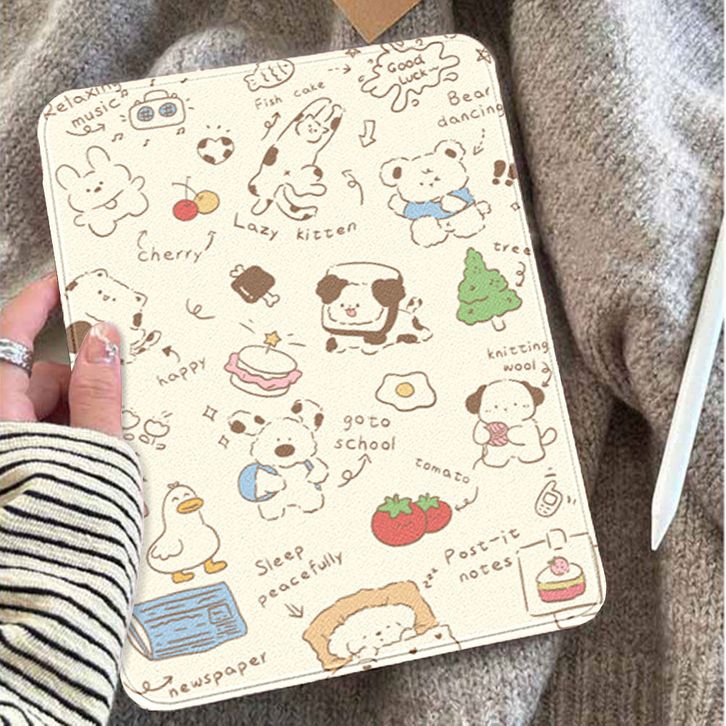 Relaxing
music
Fish cake
Good
Luck~
Bear
dancing
!!
Cherry
Lazy kitten
tree
happy
knitting
wool
goto
school
tomato
Sleep
peacefully
zzz
Post-it
notes
newspaper